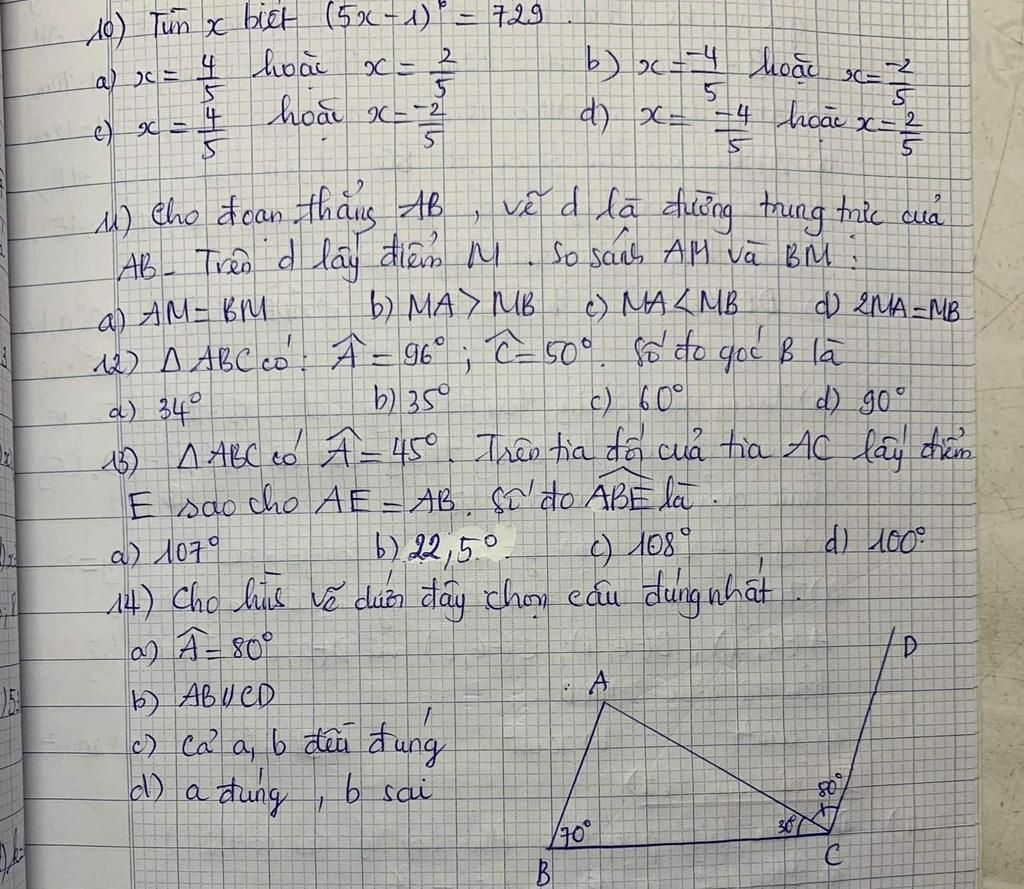 10) Tìm x biết (5x-1)⁶ = 729.
a) x = 4/5 hoặc x = 2/5 b) x = -4/5 hoặc x = -2/5
c) x = 4/5 hoặc x = -2/5 d) x = -4/5 hoặc x = 2/5
11) Cho đoạn thẳng AB, vẽ d là đường trung trực của
AB. Trên d lấy điểm M. So sánh AM và BM:
a) AM = BM b) MA > MB c) MA < MB d) 2MA = MB
12) Δ ABC có: Â = 96°; Ĉ = 50°. Số đo góc B là
a) 34° b) 35° c) 60° d) 90°
13) Δ ABC có Â = 45°. Trên tia đối của tia AC lấy điểm
E sao cho AE = AB. Số đo ABE là.
a) 107° b) 22,5° c) 108° d) 100°
14) Cho hình vẽ dưới đây chọn câu đúng nhất.
a) Â = 80°
b) AB//CD
c) Cả a, b đều đúng
d) a đúng, b sai
D
A
80°
70° 30°
B C